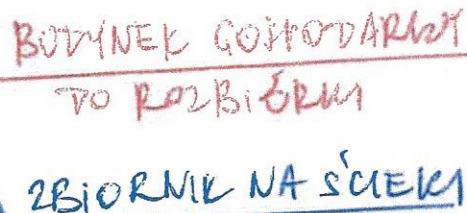 BUDYNEK GOSPODARCZY
DO ROZBIÓRKI
ZBIORNIK NA ŚCIEKI